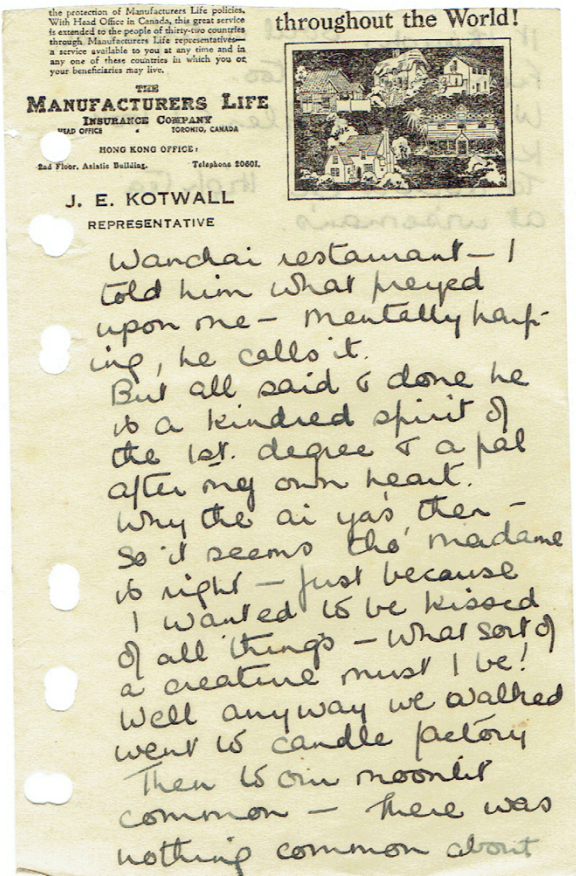 the protection of Manufacturers Life policies.
With Head Office in Canada, this great service
is extended to the people of thirty-two countries
through Manufacturers Life representatives—
a service available to you at any time and in
any one of these countries in which you or
your beneficiaries may live.
throughout the World!
THE
MANUFACTURERS LIFE
INSURANCE COMPANY
HEAD OFFICE • TORONTO, CANADA
HONG KONG OFFICE:
2nd Floor, Asiatic Building. Telephone 20601.
J. E. KOTWALL
REPRESENTATIVE
Wanchai restaurant — I
told him what preyed
upon me — mentally harp-
ing, he calls it.
But all said & done he
is a kindred spirit of
the 1st. degree & a pal
after my own heart.
Why the ai yas, then —
So it seems tho' madame
is right — just because
I wanted to be kissed
of all things — what sort of
a creature must I be!
Well anyway we walked
went to candle factory
Then to our moonlit
common — There was
nothing common about